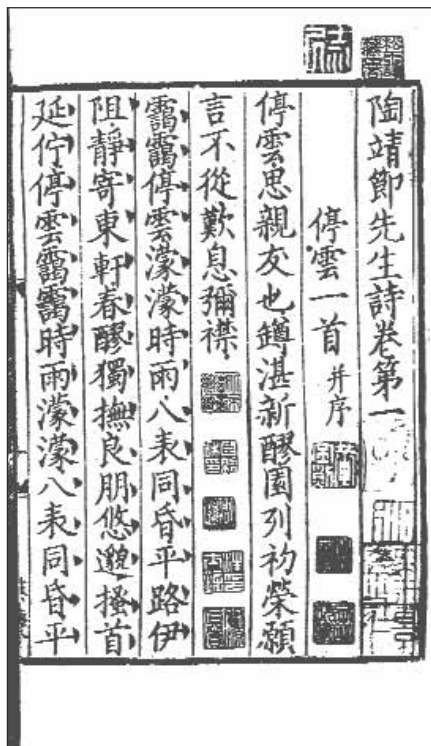 陶靖節先生詩卷第一
停雲一首 并序
停雲思親友也罇湛新醪園列初榮願
言不從歎息彌襟
靄靄停雲濛濛時雨八表同昏平路伊
阻靜寄東軒春醪獨撫良朋悠邈搔首
延佇停雲靄靄時雨濛濛八表同昏平